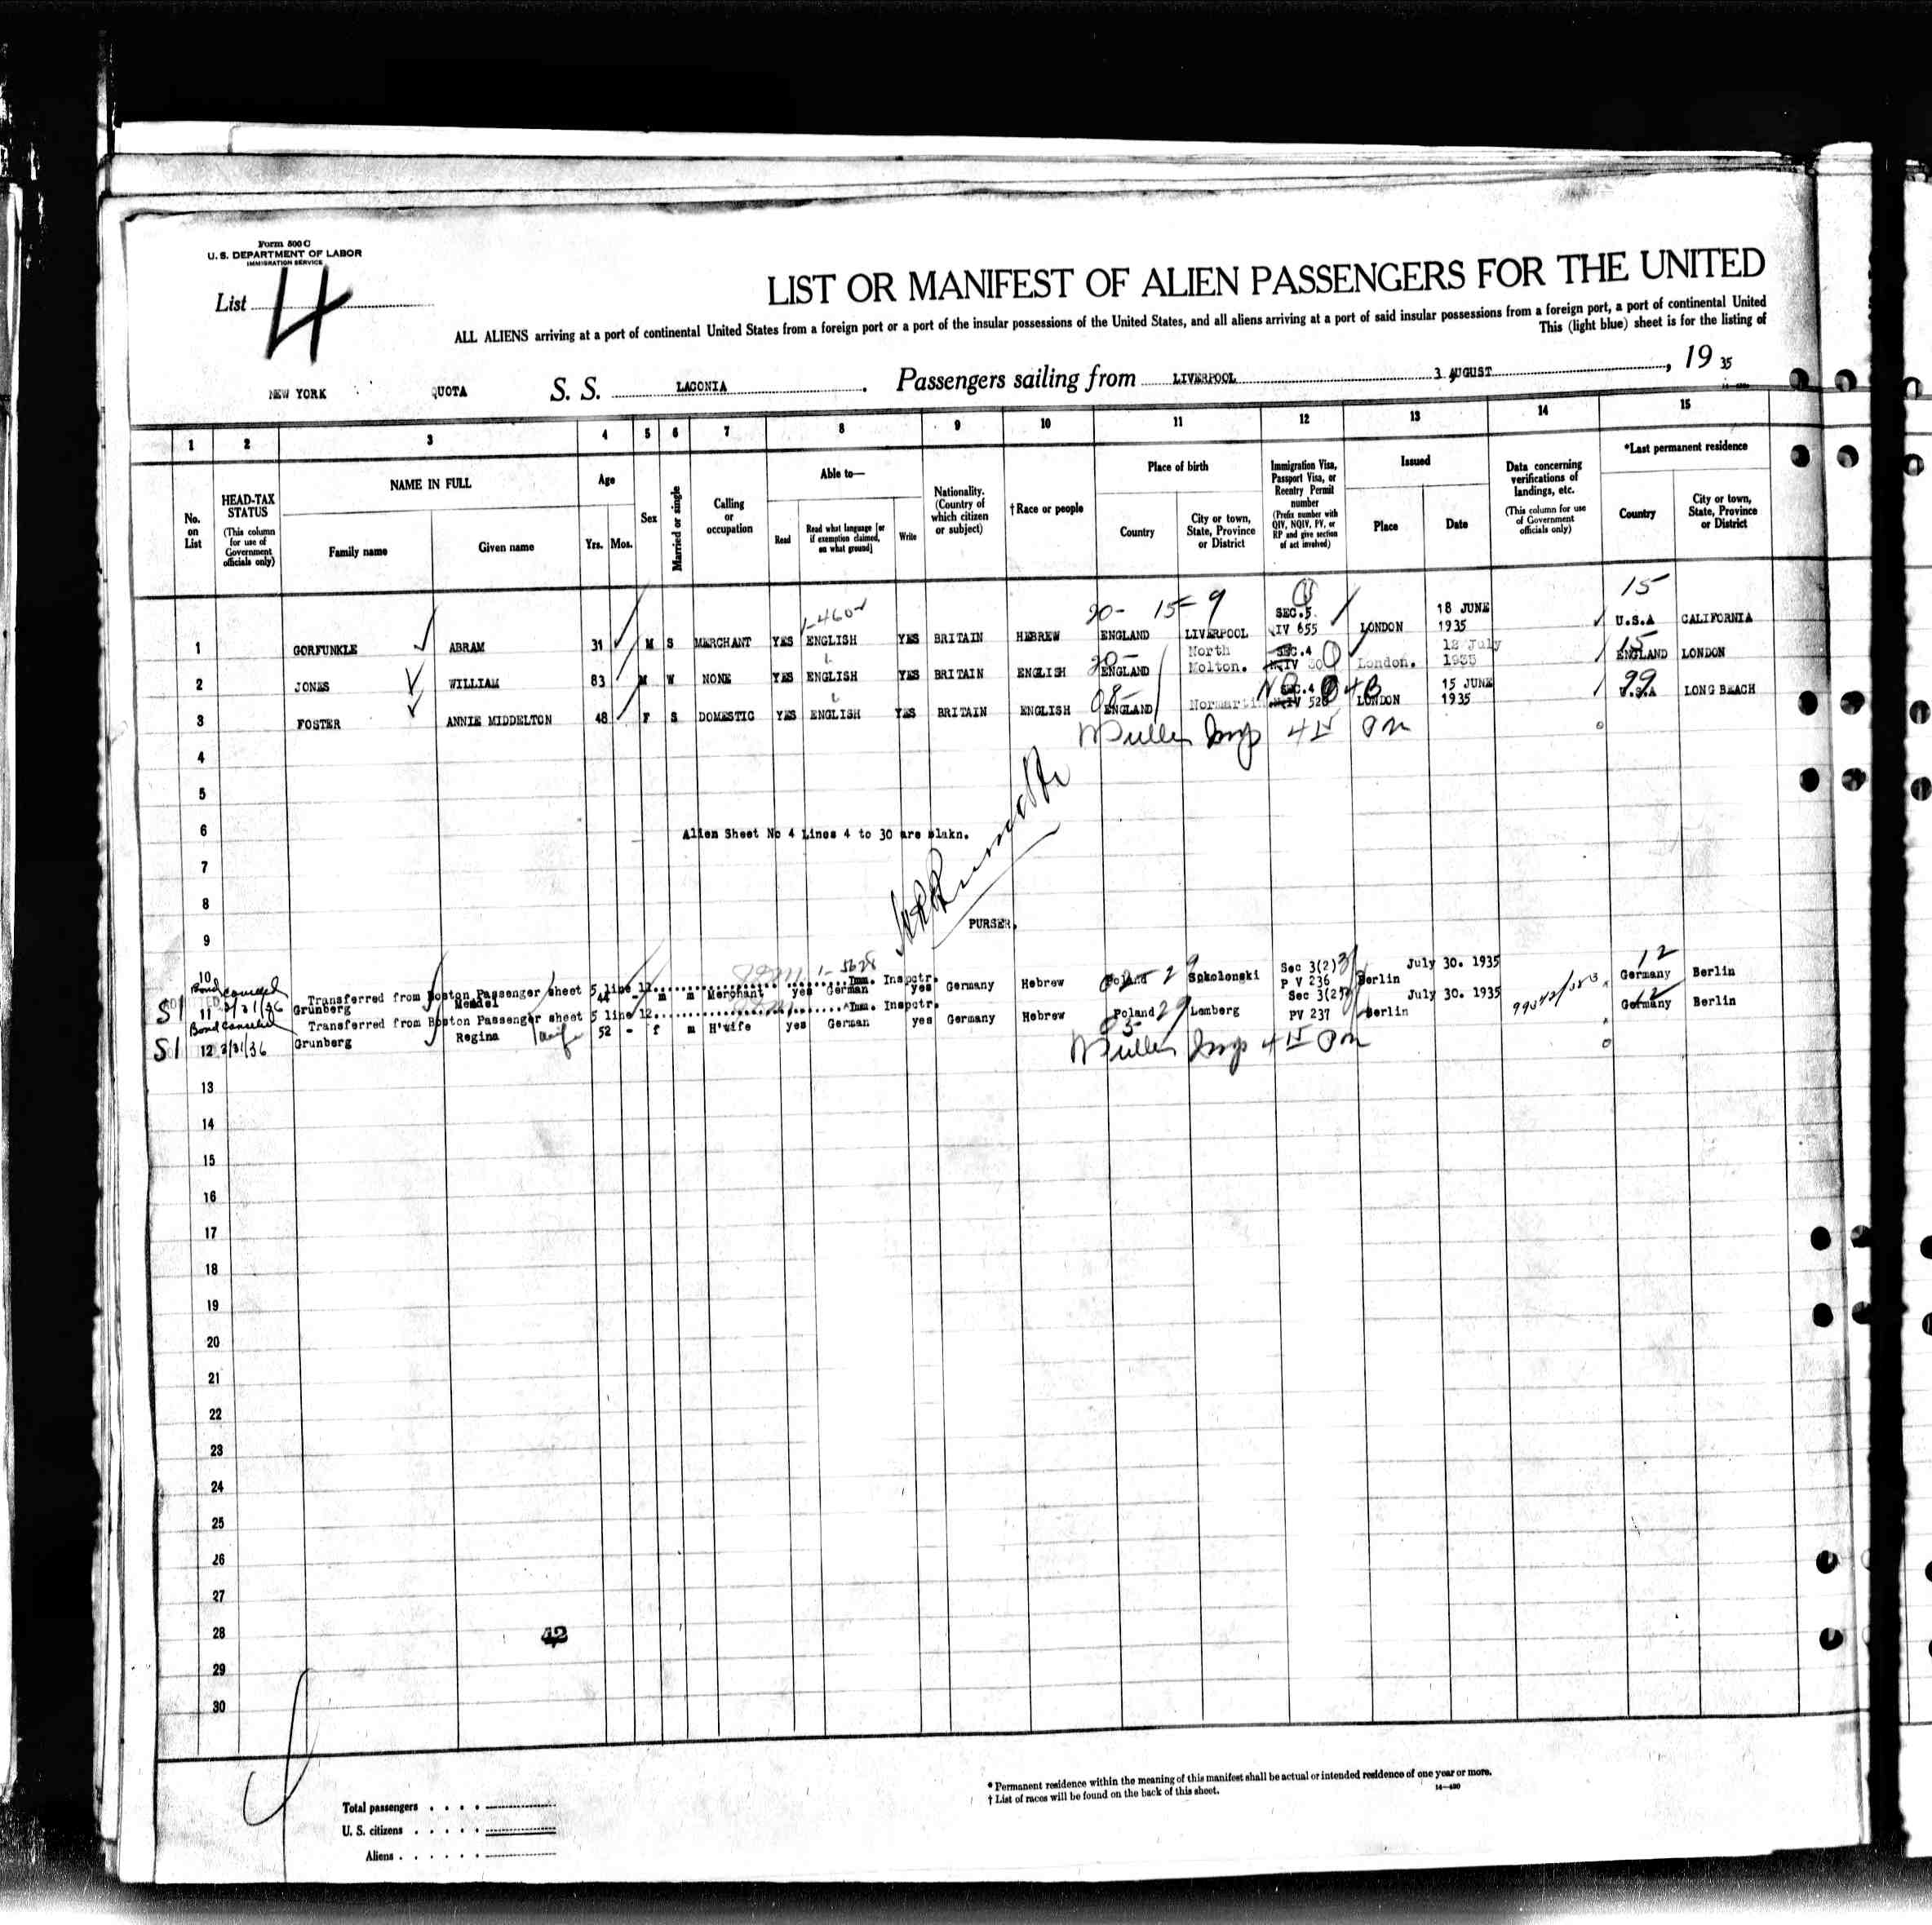 Form 500 C
U. S. DEPARTMENT OF LABOR
IMMIGRATION SERVICE
List 4
LIST OR MANIFEST OF ALIEN PASSENGERS FOR THE UNITED
ALL ALIENS arriving at a port of continental United States from a foreign port or a port of the insular possessions of the United States, and all aliens arriving at a port of said insular possessions from a foreign port, a port of continental United
This (light blue) sheet is for the listing of
NEW YORK QUOTA S. S. LACONIA . Passengers sailing from LIVERPOOL 3 AUGUST , 19 35
1 2 3 4 5 6 7 8 9 10 11 12 13 14 15
No. on List
HEAD-TAX STATUS (This column for use of Government officials only)
NAME IN FULL
Family name Given name
Age
Yrs. Mos.
Sex
Married or single
Calling or occupation
Able to—
Read
Read what language [or if exemption claimed, on what ground]
Write
Nationality. (Country of which citizen or subject)
†Race or people
Place of birth
Country
City or town, State, Province or District
Immigration Visa, Passport Visa, or Reentry Permit number (Prefix number with QIV, NQIV, PV, or RP and give section of act involved)
Issued
Place Date
Data concerning verifications of landings, etc. (This column for use of Government officials only)
*Last permanent residence
Country
City or town, State, Province or District
20- 15-9 15
1 GORFUNKLE ABRAM 31 M S MERCHANT YES ENGLISH YES BRITAIN HEBREW ENGLAND LIVERPOOL SEC.5. QIV 655 LONDON 18 JUNE 1935 U.S.A CALIFORNIA
20- 15
2 JONES WILLIAM 83 M W NONE YES ENGLISH YES BRITAIN ENGLISH ENGLAND North Molton. SEC.4 London. 12 July 1935 ENGLAND LONDON
08- 99
3 FOSTER ANNIE MIDDELTON 48 F S DOMESTIC YES ENGLISH YES BRITAIN ENGLISH ENGLAND SEC.4 LONDON 15 JUNE 1935 U.S.A LONG BEACH
4
5
6 Alien Sheet No 4 Lines 4 to 30 are blakn.
7
8
PURSER.
9
10 Transferred from Boston Passenger sheet 5 line Imm. Inspctr.
Bond canceled 3/31/36
S1 11 Grunberg Mendel 44 - m m Merchant yes German yes Germany Hebrew Poland Sokolonski Sec 3(2) P V 236 Berlin July 30. 1935 12 Germany Berlin
Transferred from Boston Passenger sheet 5 line 12 Imm. Inspctr.
Bond canceled
S1 12 3/31/36 Grunberg Regina wife 52 - f m H'wife yes German yes Germany Hebrew Poland Lemberg Sec 3(2) PV 237 Berlin July 30. 1935 12 Germany Berlin
13
14
15
16
17
18
19
20
21
22
23
24
25
26
27
28 42
29
30
* Permanent residence within the meaning of this manifest shall be actual or intended residence of one year or more.
† List of races will be found on the back of this sheet.
14—480
Total passengers . . . .
U. S. citizens . . . . .
Aliens . . . . . .